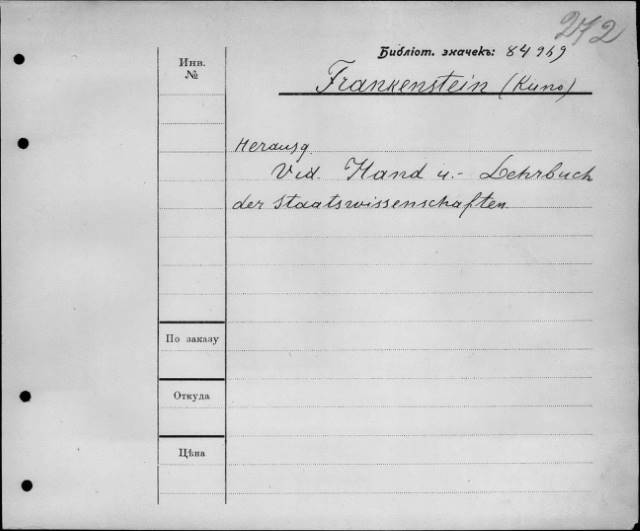 272
Библіот. значекъ: 84969
Инв.
№
Frankenstein (Kuno)
Herausg.
Vid. Hand u.- Lehrbuch
der Staatswissenschaften.
По заказу
Откуда
Цѣна